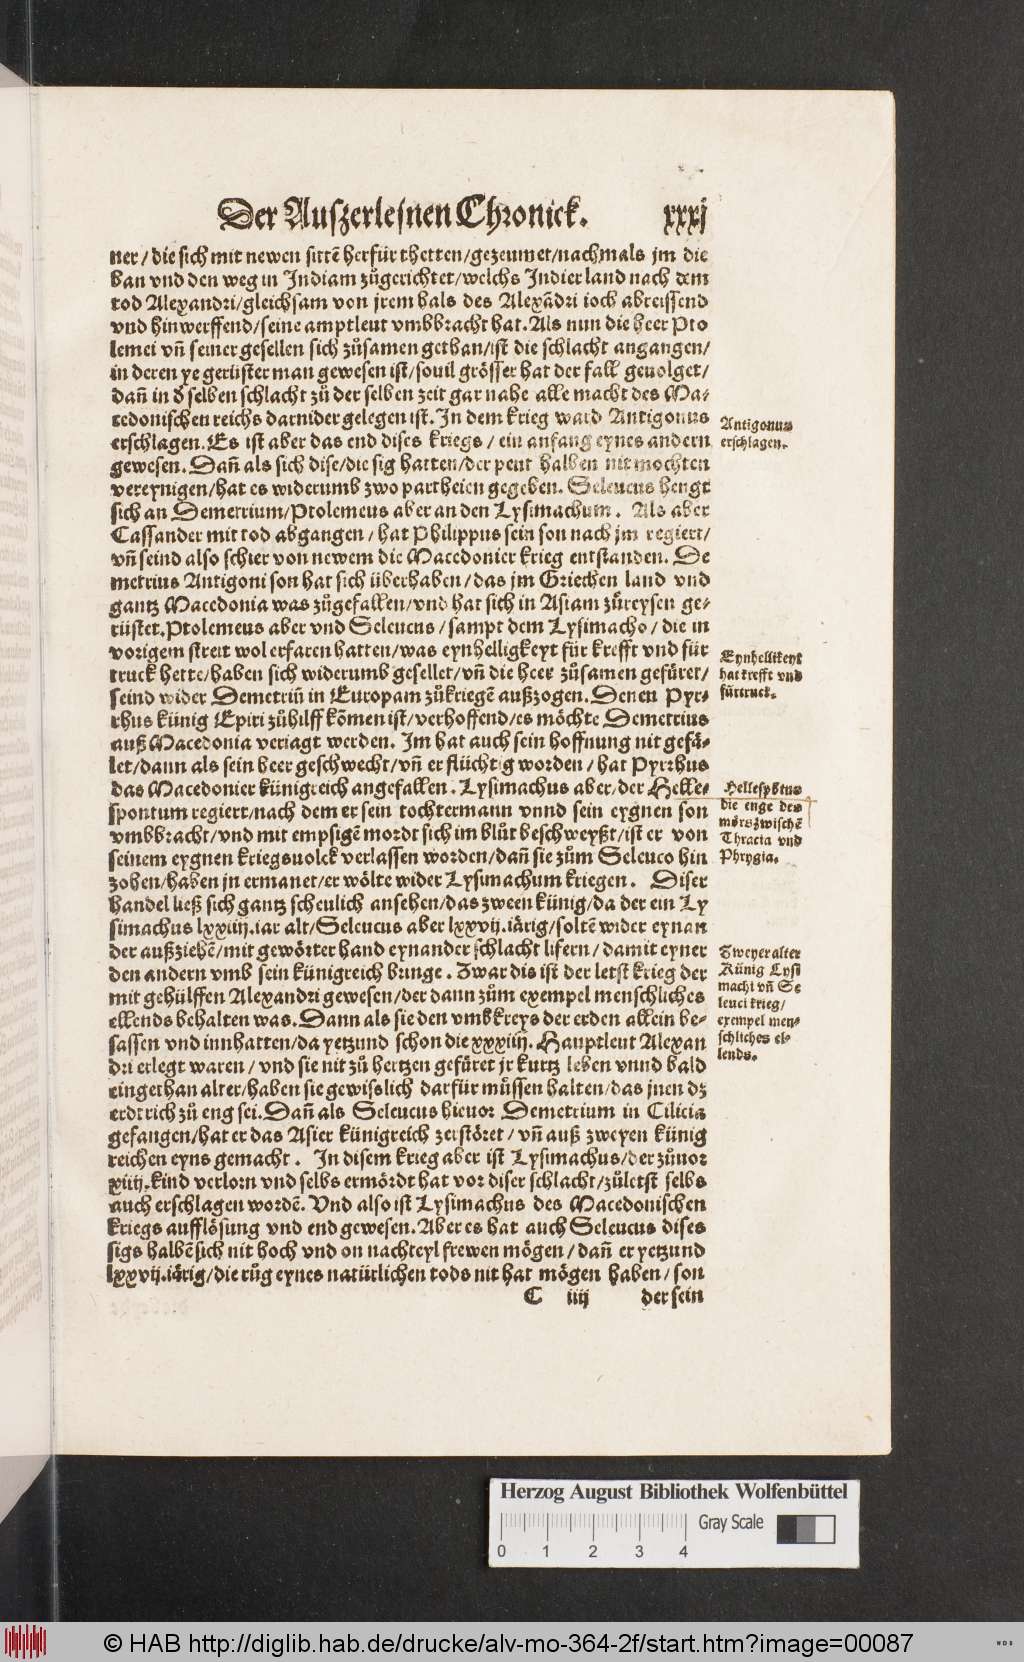 Der Auszerlesnen Chronick. xxxj
ner / die sich mit newen sittē herfür thetten / gezeumet / nachmals jm die
ban vnd den weg in Indiam zůgerichtet / welchs Indier land nach dem
tod Alexandri / gleichsam von jrem hals des Alexādri ioch abreissend
vnd hinwerffend / seine amptleut vmbbracht hat. Als nun die heer Pto
lemei vn̄ seiner gesellen sich zůsamen gethan / ist die schlacht angangen /
in deren ye gerüster man gewesen ist / souil grösser hat der fall geuolget /
dan̄ in d̕ selben schlacht zů der selben zeit gar nahe alle macht des Ma-
cedonischen reichs darnider gelegen ist. In dem krieg ward Antigonus
erschlagen. Es ist aber das end dises kriegs / ein anfang eynes andern
gewesen. Dan̄ als sich dise / die sig hatten / der peut halben nit mochten
vereynigen / hat es widerumb zwo partheien gegeben. Seleucus hengt
sich an Demetrium / Ptolemeus aber an den Lysimachum. Als aber
Cassander mit tod abgangen / hat Philippus sein son nach jm regiert /
vn̄ seind also schier von newem die Macedonier krieg entstanden. De
metrius Antigoni son hat sich überhaben / das jm Griechen land vnd
gantz Macedonia was zůgefallen / vnd hat sich in Asiam zůreysen ge-
rüstet. Ptolemeus aber vnd Seleucus / sampt dem Lysimacho / die in
vorigem streit wol erfaren hatten / was eynhelligkeyt für krefft vnd für
truck hette / haben sich widerumb gesellet / vn̄ die heer zůsamen gefüret /
seind wider Demetriū in Europam zůkriegē außzogen. Denen Pyr-
rhus künig Epiri zůhilff kōmen ist / verhoffend / es möchte Demetrius
auß Macedonia veriagt werden. Im hat auch sein hoffnung nit gefä-
let / dann als sein heer geschwecht / vn̄ er flüchtig worden / hat Pyrrhus
das Macedonier künigreich angefallen. Lysimachus aber / der Helle-
spontum regiert / nach dem er sein tochtermann vnnd sein eygnen son
vmbbracht / vnd mit empsigē mordt sich im blůt beschweyßt / ist er von
seinem eygnen kriegsuolck verlassen worden / dan̄ sie zům Seleuco hin
zohen / haben jn ermanet / er wölte wider Lysimachum kriegen. Diser
handel ließ sich gantz scheulich ansehen / das zween künig / da der ein Ly
simachus lxxiiij. iar alt / Seleucus aber lxxvij. iärig / soltē wider eynan
der außziehē / mit gewörter hand eynander schlacht lifern / damit eyner
den andern vmb sein künigreich bringe. Zwar dis ist der letst krieg der
mit gehülffen Alexandri gewesen / der dann zům exempel menschliches
ellends behalten was. Dann als sie den vmbkreys der erden allein be-
sassen vnd innhatten / da yetzund schon die xxxiiij. Hauptleut Alexan
dri erlegt waren / vnd sie nit zů hertzen gefüret jr kurtz leben vnnd bald
eingethan alter / haben sie gewißlich darfür müssen halten / das jnen dz
erdtrich zů eng sei. Dan̄ als Seleucus hieuor Demetrium in Cilicia
gefangen / hat er das Asier künigreich zerstöret / vn̄ auß zweyen künig
reichen eyns gemacht. In disem krieg aber ist Lysimachus / der zůuor
xiiij. kind verlorn vnd selbs ermördt hat vor diser schlacht / zůletst selbs
auch erschlagen wordē. Vnd also ist Lysimachus des Macedonischen
kriegs aufflösung vnd end gewesen. Aber es hat auch Seleucus dises
sigs halbē sich nit hoch vnd on nachteyl frewen mögen / dan̄ er yetzund
lxxvij. iärig / die růg eynes natürlichen tods nit hat mögen haben / son
C iiij der sein
Antigonus
erschlagen.
Eynhellikeyt
hat krefft vnd
fürtruck.
Hellespōtus
die enge des
mörs zwischē
Thracia vnd
Phrygia.
Zweyer alter
Künig Lysi
machi vn̄ Se
leuci krieg /
exempel men-
schliches el-
lends.
Herzog August Bibliothek Wolfenbüttel
Gray Scale
0 1 2 3 4
© HAB http://diglib.hab.de/drucke/alv-mo-364-2f/start.htm?image=00087